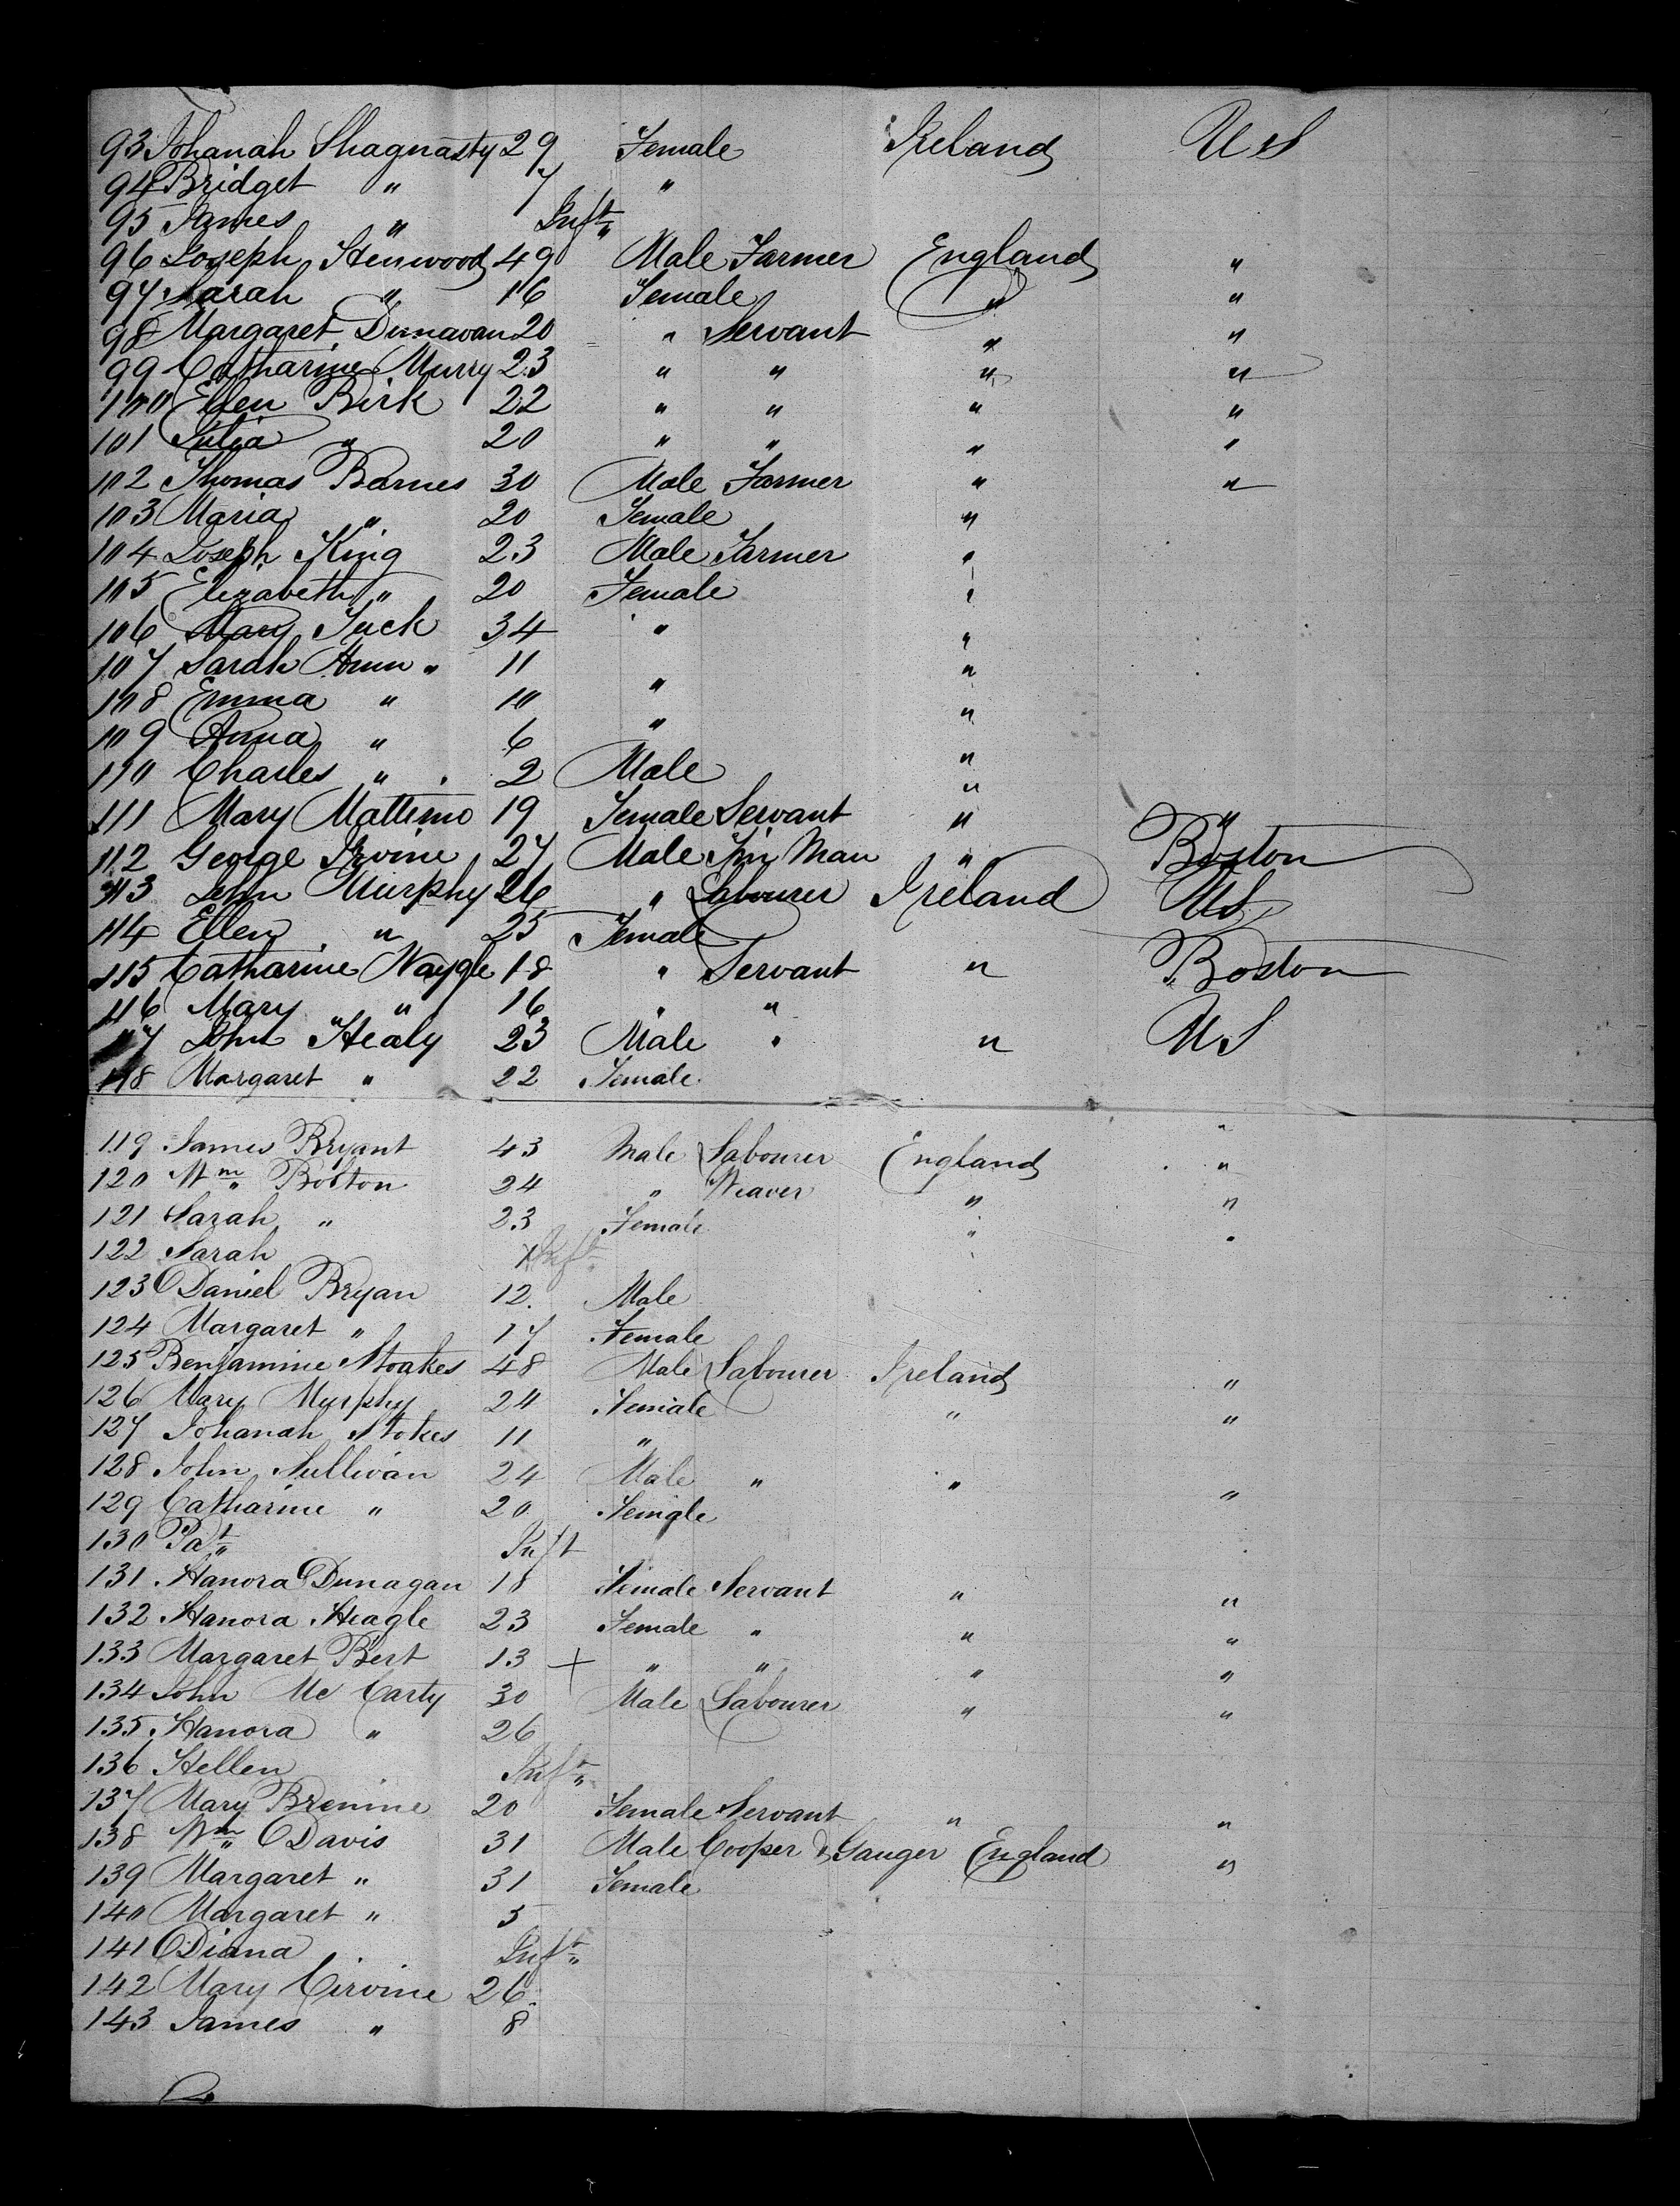 93 Johanah Shagnasty 29 Female Ireland US
94 Bridget " 7 "
95 James " Inft
96 Joseph Stenwood 49 Male Farmer England "
97 Sarah " 16 Female " "
98 Margaret Dunavan 20 " Servant " "
99 Catharine Murry 23 " " " "
100 Ellen Birk 22 " " " "
101 Julia " 20 " " " "
102 Thomas Barnes 30 Male Farmer " "
103 Maria " 20 Female "
104 Joseph King 23 Male Farmer "
105 Elizabeth " 20 Female "
106 Mary Tuck 34 " "
107 Sarah Ann " 11 "
108 Emma " 10 " "
109 Anna " 6 " "
110 Charles " 2 Male "
111 Mary Mattimo 19 Female Servant " "
112 George Irvine 27 Male Tin Man " Boston
113 John Murphy 26 " Labourer Ireland US
114 Ellen " 25 Female
115 Catharine Naygle 18 " Servant " Boston
116 Mary " 16 " "
117 John Healy 23 Male " " US
118 Margaret " 22 Female
119 James Bryant 43 Male Labourer England "
120 Wm Boston 24 " Weaver " "
121 Sarah " 23 Female " "
122 Sarah Inft
123 Daniel Bryan 12 Male
124 Margaret " 17 Female
125 Benjamine Stoakes 48 Male Labourer Ireland "
126 Mary Murphy 24 Female " "
127 Johanah Stokes 11 "
128 John Sullivan 24 Male " " "
129 Catharine " 20 Female
130 Pat Inft
131 Hanora Dunagan 18 Female Servant " "
132 Hanora Heagle 23 Female " " "
133 Margaret Bert 13 + " " " "
134 John Mc Carty 30 Male Labourer " "
135 Hanora " 26
136 Hellen Inft
137 Mary Brenine 20 Female Servant " "
138 Wm Davis 31 Male Cooper & Gauger England "
139 Margaret " 31 Female
140 Margaret " 5
141 Diana Inft
142 Mary Cirvine 26
143 James " 8